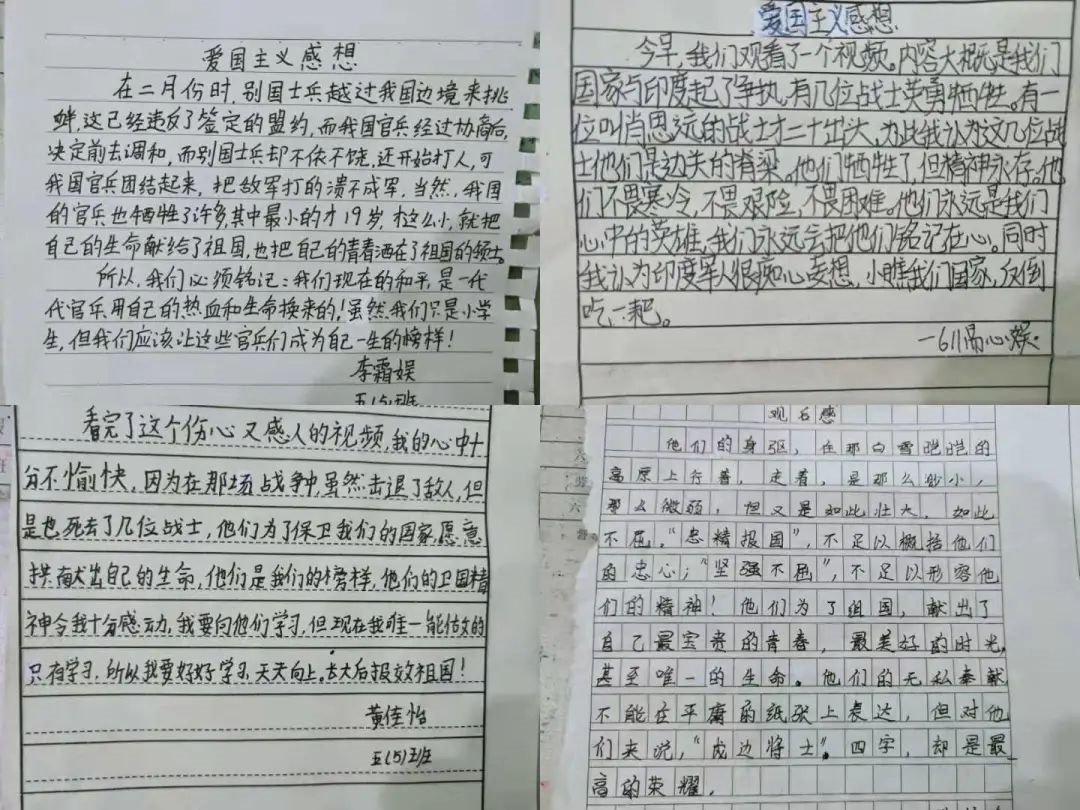 爱国主义感想
在二月份时,别国士兵越过我国边境来挑
衅,这已经违反了签定的盟约,而我国官兵经过协商后,
决定前去调和,而别国士兵却不依不饶,还开始打人,可
我国官兵团结起来,把敌军打的溃不成军,当然,我国
的官兵也牺牲了许多,其中最小的才19岁,才这么小,就把
自己的生命献给了祖国,也把自己的青春洒在了祖国的领土。
所以,我们必须铭记:我们现在的和平是一代
代官兵用自己的热血和生命换来的!虽然我们只是小学
生,但我们应该让这些官兵们成为自己一生的榜样!
李霜娱
五(5)班
爱国主义感想
今早,我们观看了一个视频。内容大概是我们
国家与印度起了争执,有几位战士英勇牺牲。有一
位叫肖思远的战士才二十出头,为此我认为这几位战
士他们是边关的脊梁。他们牺牲了,但精神永存。他
们不畏寒冷,不畏艰险,不畏困难。他们永远是我们
心中的英雄,我们永远会把他们铭记在心。同时
我认为印度军人很痴心妄想,小瞧我们国家,反倒
吃一耙。
一611 心娱
看完了这个伤心又感人的视频,我的心中十
分不愉快,因为在那场战争中,虽然击退了敌人,但
是也死去了几位战士,他们为了保卫我们的国家愿意
拱献出自己的生命,他们是我们的榜样,他们的卫国精
神令我十分感动,我要向他们学习,但现在我唯一能做的
只有学习,所以我要好好学习,天天向上。长大后报效祖国!
黄佳怡
五(5)班
观后感
他们的身躯,在那白雪皑皑的
高原上行着,走着,是那么渺小,
那么微弱,但又是如此壮大,如此
不屈。“忠精报国”,不足以概括他们
的忠心;“坚强不屈”,不足以形容他
们的精神!他们为了祖国,献出了
自己最宝贵的青春,最美好的时光,
甚至唯一的生命。他们的无私奉献
不能在平庸的纸张上表达,但对他
们来说,“戍边将士”四字,却是最
高的荣耀。